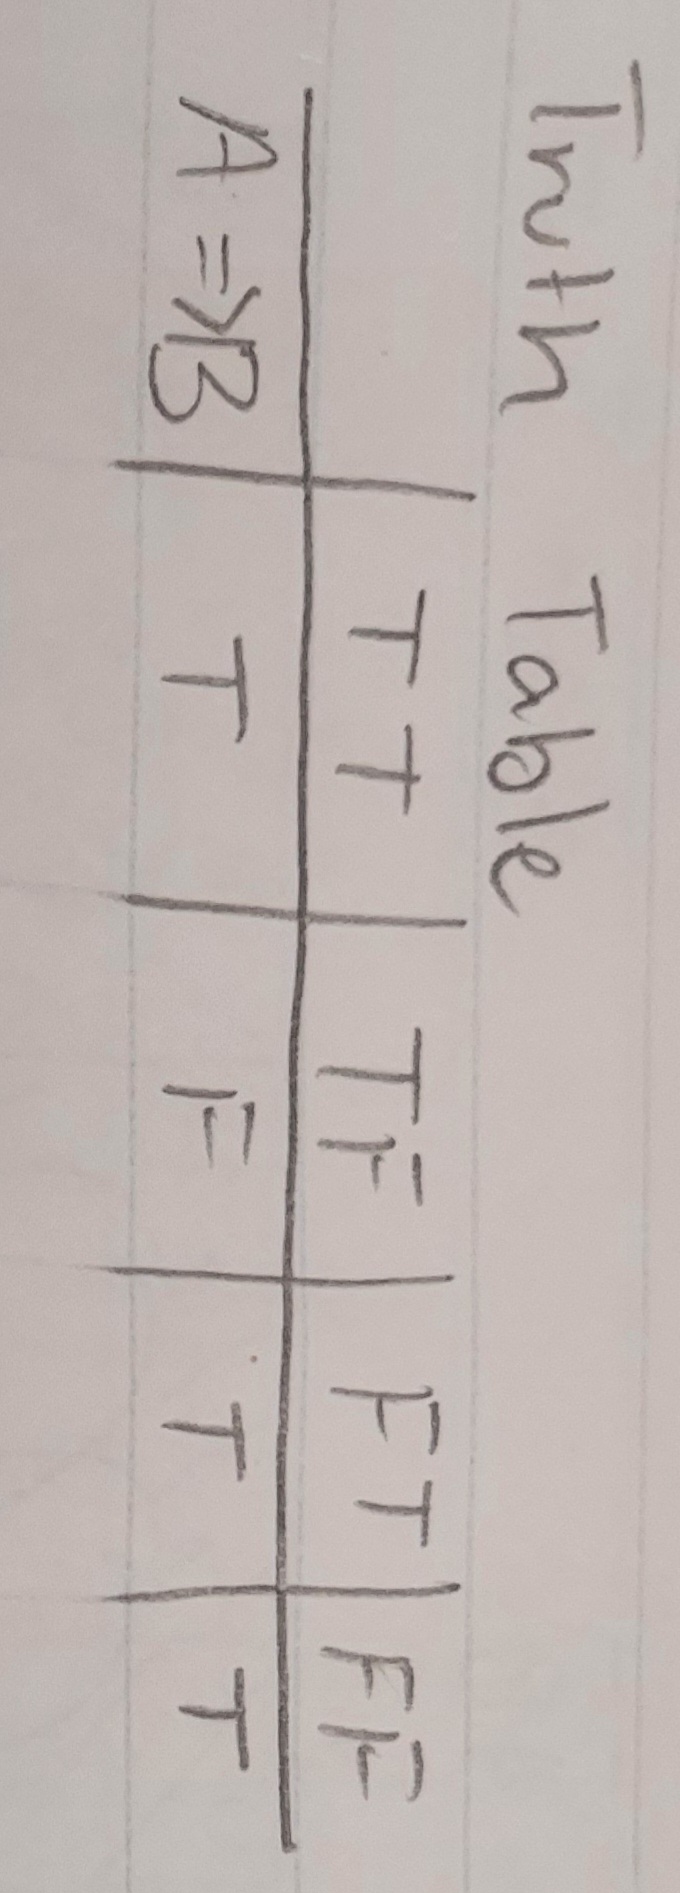 Truth Table
T T TF FT FF
A =>B T F T T